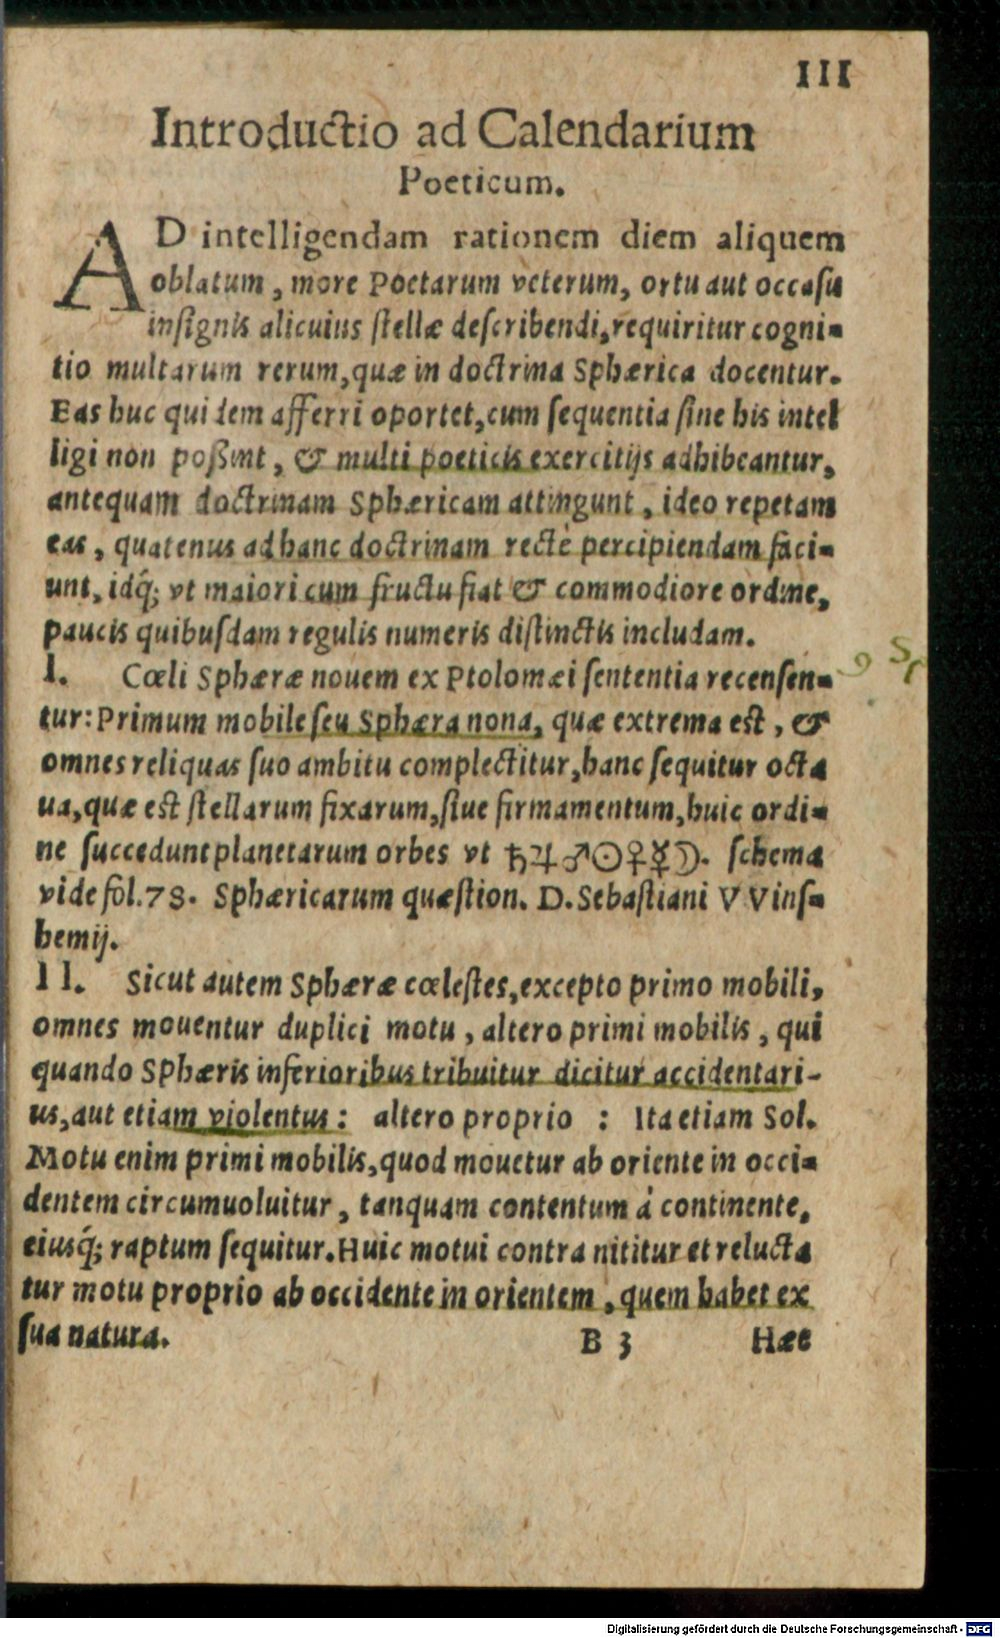 III
Introductio ad Calendarium
Poeticum.
AD intelligendam rationem diem aliquem
oblatum, more Poetarum veterum, ortu aut occasu
insignis alicuius stellæ describendi, requiritur cogni-
tio multarum rerum, quæ in doctrina Sphærica docentur.
Eas huc quidem afferri oportet, cum sequentia sine his intel
ligi non poßint, & multi poeticis exercitijs adhibeantur,
antequam doctrinam Sphæricam attingunt, ideo repetam
eas, quatenus ad hanc doctrinam rectè percipiendam faci-
unt, idq́; vt maiori cum fructu fiat & commodiore ordine,
paucis quibusdam regulis numeris distinctis includam.
I. Cœli Sphæræ nouem ex Ptolomæi sententia recensen-
tur: Primum mobile seu Sphæra nona, quæ extrema est, &
omnes reliquas suo ambitu complectitur, hanc sequitur octa
ua, quæ est stellarum fixarum, siue firmamentum, huic ordi-
ne succedunt planetarum orbes vt ♄♃♂☉♀☿☽. schema
vide fol. 78. Sphæricarum quæstion. D. Sebastiani VVins-
hemij.
II. Sicut autem Sphæræ cœlestes, excepto primo mobili,
omnes mouentur duplici motu, altero primi mobilis, qui
quando Sphæris inferioribus tribuitur dicitur accidentari-
us, aut etiam violentus: altero proprio : Ita etiam Sol.
Motu enim primi mobilis, quod mouetur ab oriente in occi-
dentem circumuoluitur, tanquam contentum á continente,
eiusq́; raptum sequitur. Huic motui contra nititur et relucta
tur motu proprio ab occidente in orientem, quem habet ex
sua natura.
B 3 Hæc
Digitalisierung gefördert durch die Deutsche Forschungsgemeinschaft - DFG